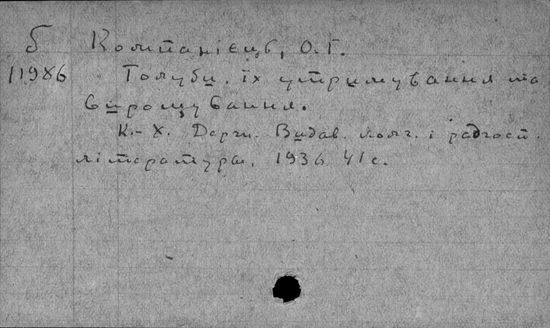 Б Компанієць, О.Г.
11986 Голуби, їх утримування та
вирощування.
К.-Х. Держ. Видав. колг. і радгосп.
літератури. 1936 41 с.